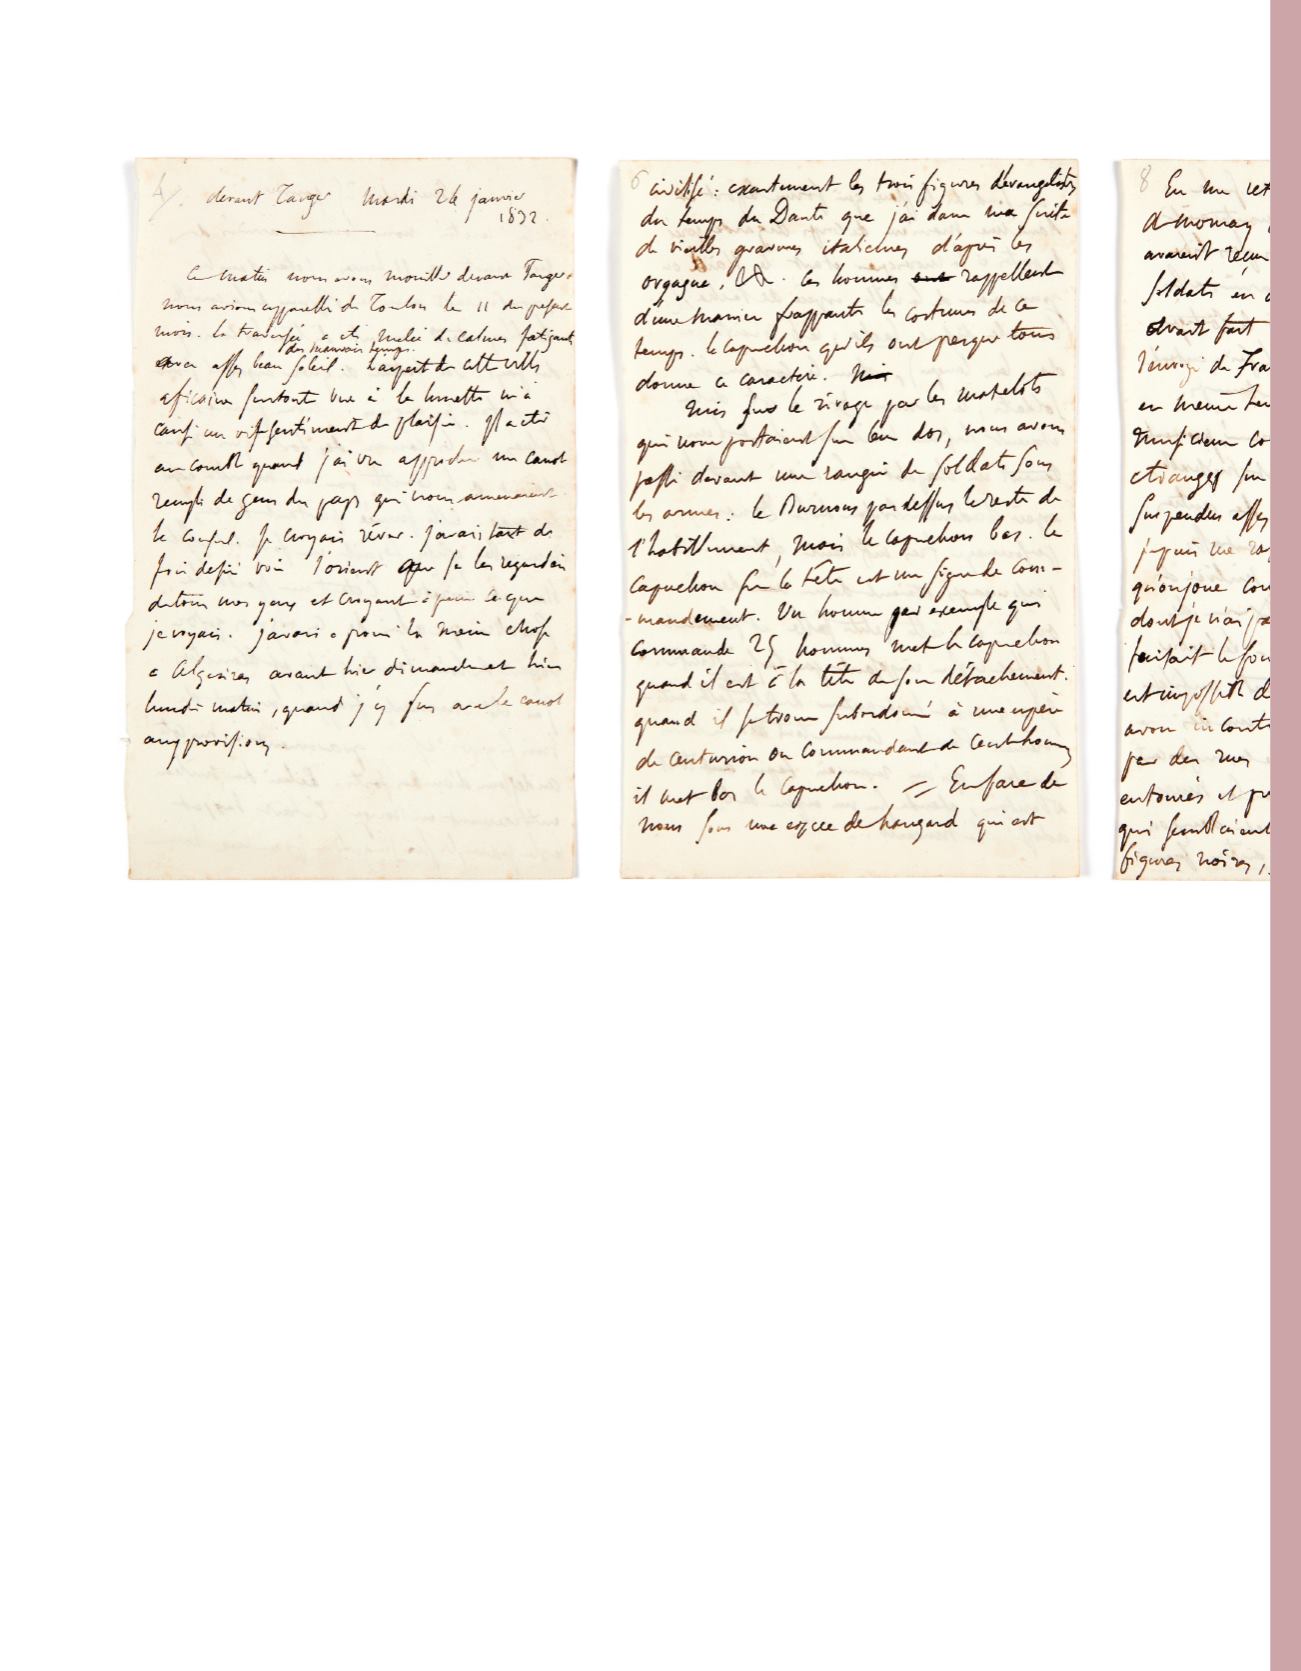 4/.
devant Tanger mardi 24 janvier
1832.
Ce matin nous avons mouillé devant Tanger.
nous avions appareillé de Toulon le 11 du présent
mois. la traversée a été mêlée de calmes fatigants
des mauvais temps.
assez beau soleil. L'aspect de cette ville
africaine surtout vue à la lunette m'a
causé un vif sentiment de plaisir. Il a été
au comble quand j'ai vu approcher un canot
rempli de gens du pays qui nous amenaient
le consul. Je croyais rêver. j'avais tant de
fois desiré voir l'orient que je les regardais
de tous mes yeux et croyant à peine ce que
je voyais. j'avais eprouvé la meme chose
a Algesiras avant hier dimanche et hier
lundi matin, quand j'y fus avec le canot
aux provisions.
6
civilisé : exactement les trois figures d'evangelistes
du temps du Dante que j'ai dans ma suite
de vieilles gravures italiennes d'après les
orgagna, &&. Les hommes rappellent
d'une maniere frappante les costumes de ce
temps. le capuchon qu'ils ont presque tous
donne ce caractère.
Mis sur le rivage par les matelots
qui nous portaient sur leur dos, nous avons
passé devant une rangée de soldats sous
les armes : le Burnous par dessus le reste de
l'habillement, mais le capuchon bas. le
capuchon sur la tête est un signe de com-
-mandement. Un homme par exemple qui
commande 25 hommes met le capuchon
quand il est à la tête de son détachement.
quand il se trouve subordonné à une espèce
de centurion ou commandant de cent hommes
il met bas le capuchon. = En face de
nous sous une espèce de hangard qui est
8 En me
d mornay
avaient reçu
soldats en
avait fait
l'envoyé de Fra
en meme tem
musicien co
etranges sur
suspendus assez
depuis une
qu'on joue
dont je n'ai pa
faisait le
est impossible d
avons incont
par des rues
entourés et
qui semblaient
figures noires,